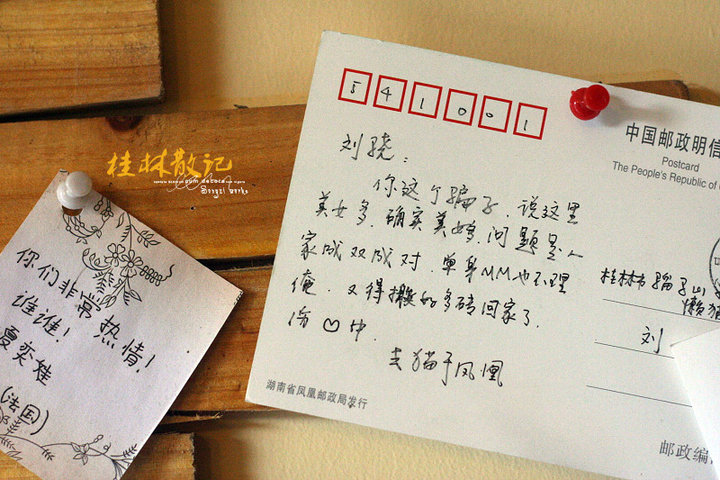 桂林散记
你们非常热情!
谁谁!
夏奕桂
(法国)
541001
中国邮政明信
Postcard
The People's Republic of
刘骁:
你这个骗子,说这里
美女多,确实美女多,问题是人
家成双成对,单身MM也不理
俺,又得搬好多砖回家了.
伤♡中.
去猫于凤凰
桂林市骝马山
懒猫
刘
湖南省凤凰邮政局发行
邮政编